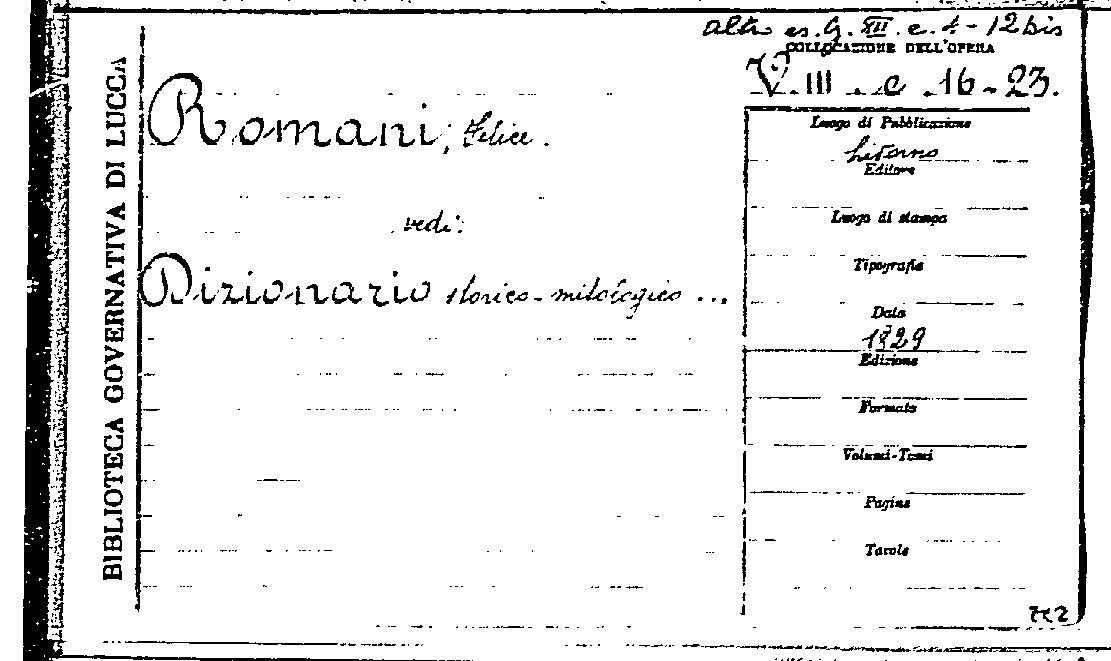 altro es. G. XII. c. 1-12 bis
COLLOCAZIONE DELL'OPERA
V. III. c. 16-23.
BIBLIOTECA GOVERNATIVA DI LUCCA
Romani, Felice.
vedi:
Dizionario storico-mitologico ...
Luogo di Pubblicazione
Livorno
Editore
Luogo di stampa
Tipografia
Data
1829
Edizione
Formato
Volumi-Tomi
Pagine
Tavole